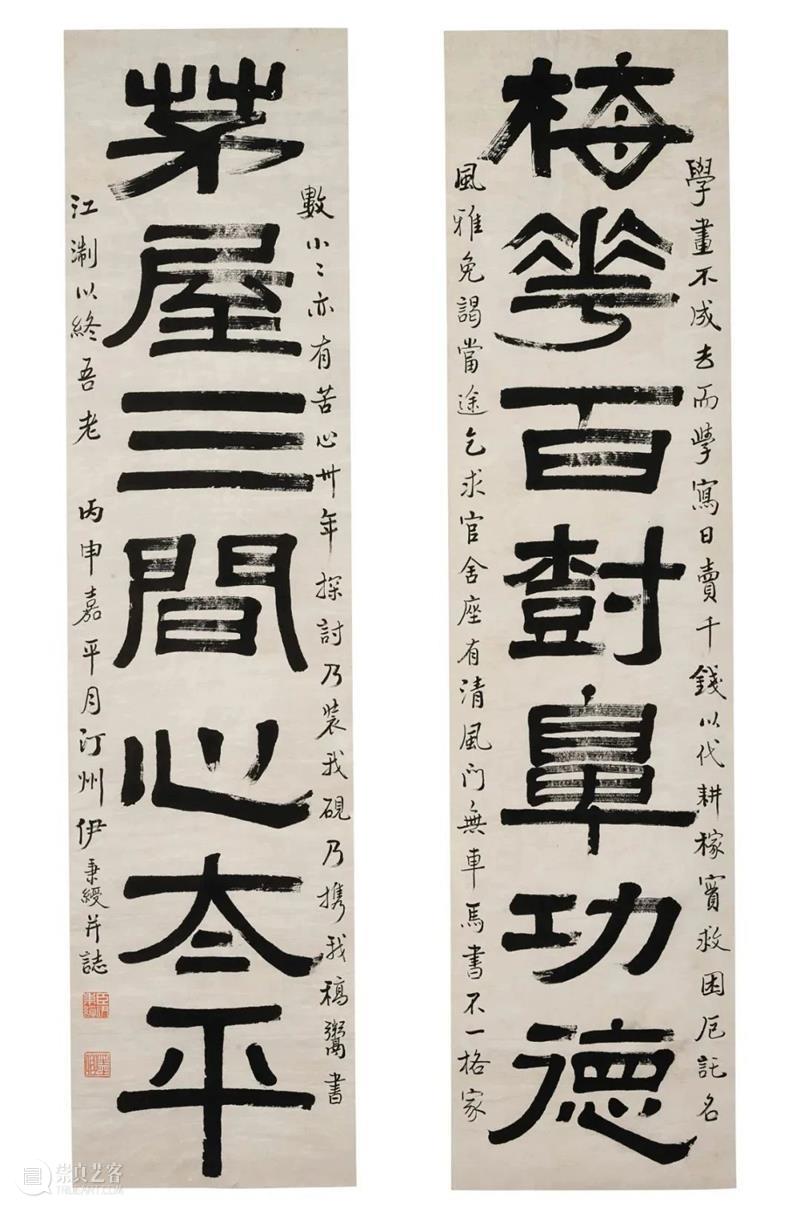 學畫不成去而學寫日賣千錢以代耕稼實救困厄託名
梅花百樹鼻功德
風雅免謁當途乞求官舍座有清風門無車馬書不一格家
數小〻亦有苦心卅年探討乃裝我硯乃携我稿鬻書
茅屋三間心太平
江淛以終吾老 丙申嘉平月汀州伊秉綬并誌
崇真艺客
TRUEART.COM